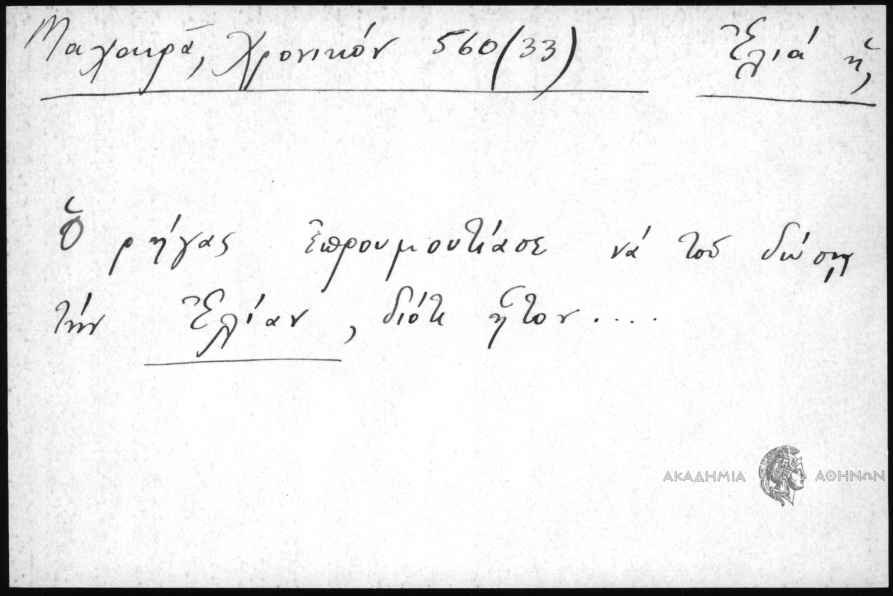 Μαχαιρᾶ, Χρονικόν 560 (33) Ἐλιά ἡ,
Ὁ ρήγας ἐπρουμουτίασε νά τοῦ δώσῃ
τήν Ἐλίαν, διότι ἦτον....
ΑΚΑΔΗΜΙΑ ΑΘΗΝΩΝ